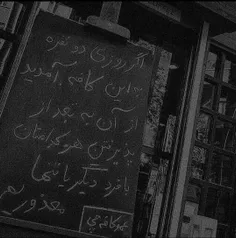 اگر روزی دو نفره
به این کافه آمدید
از آن به بعد از
پذیرفتن هر کدامتان
با فرد دیگر یا تنها
معذوریم